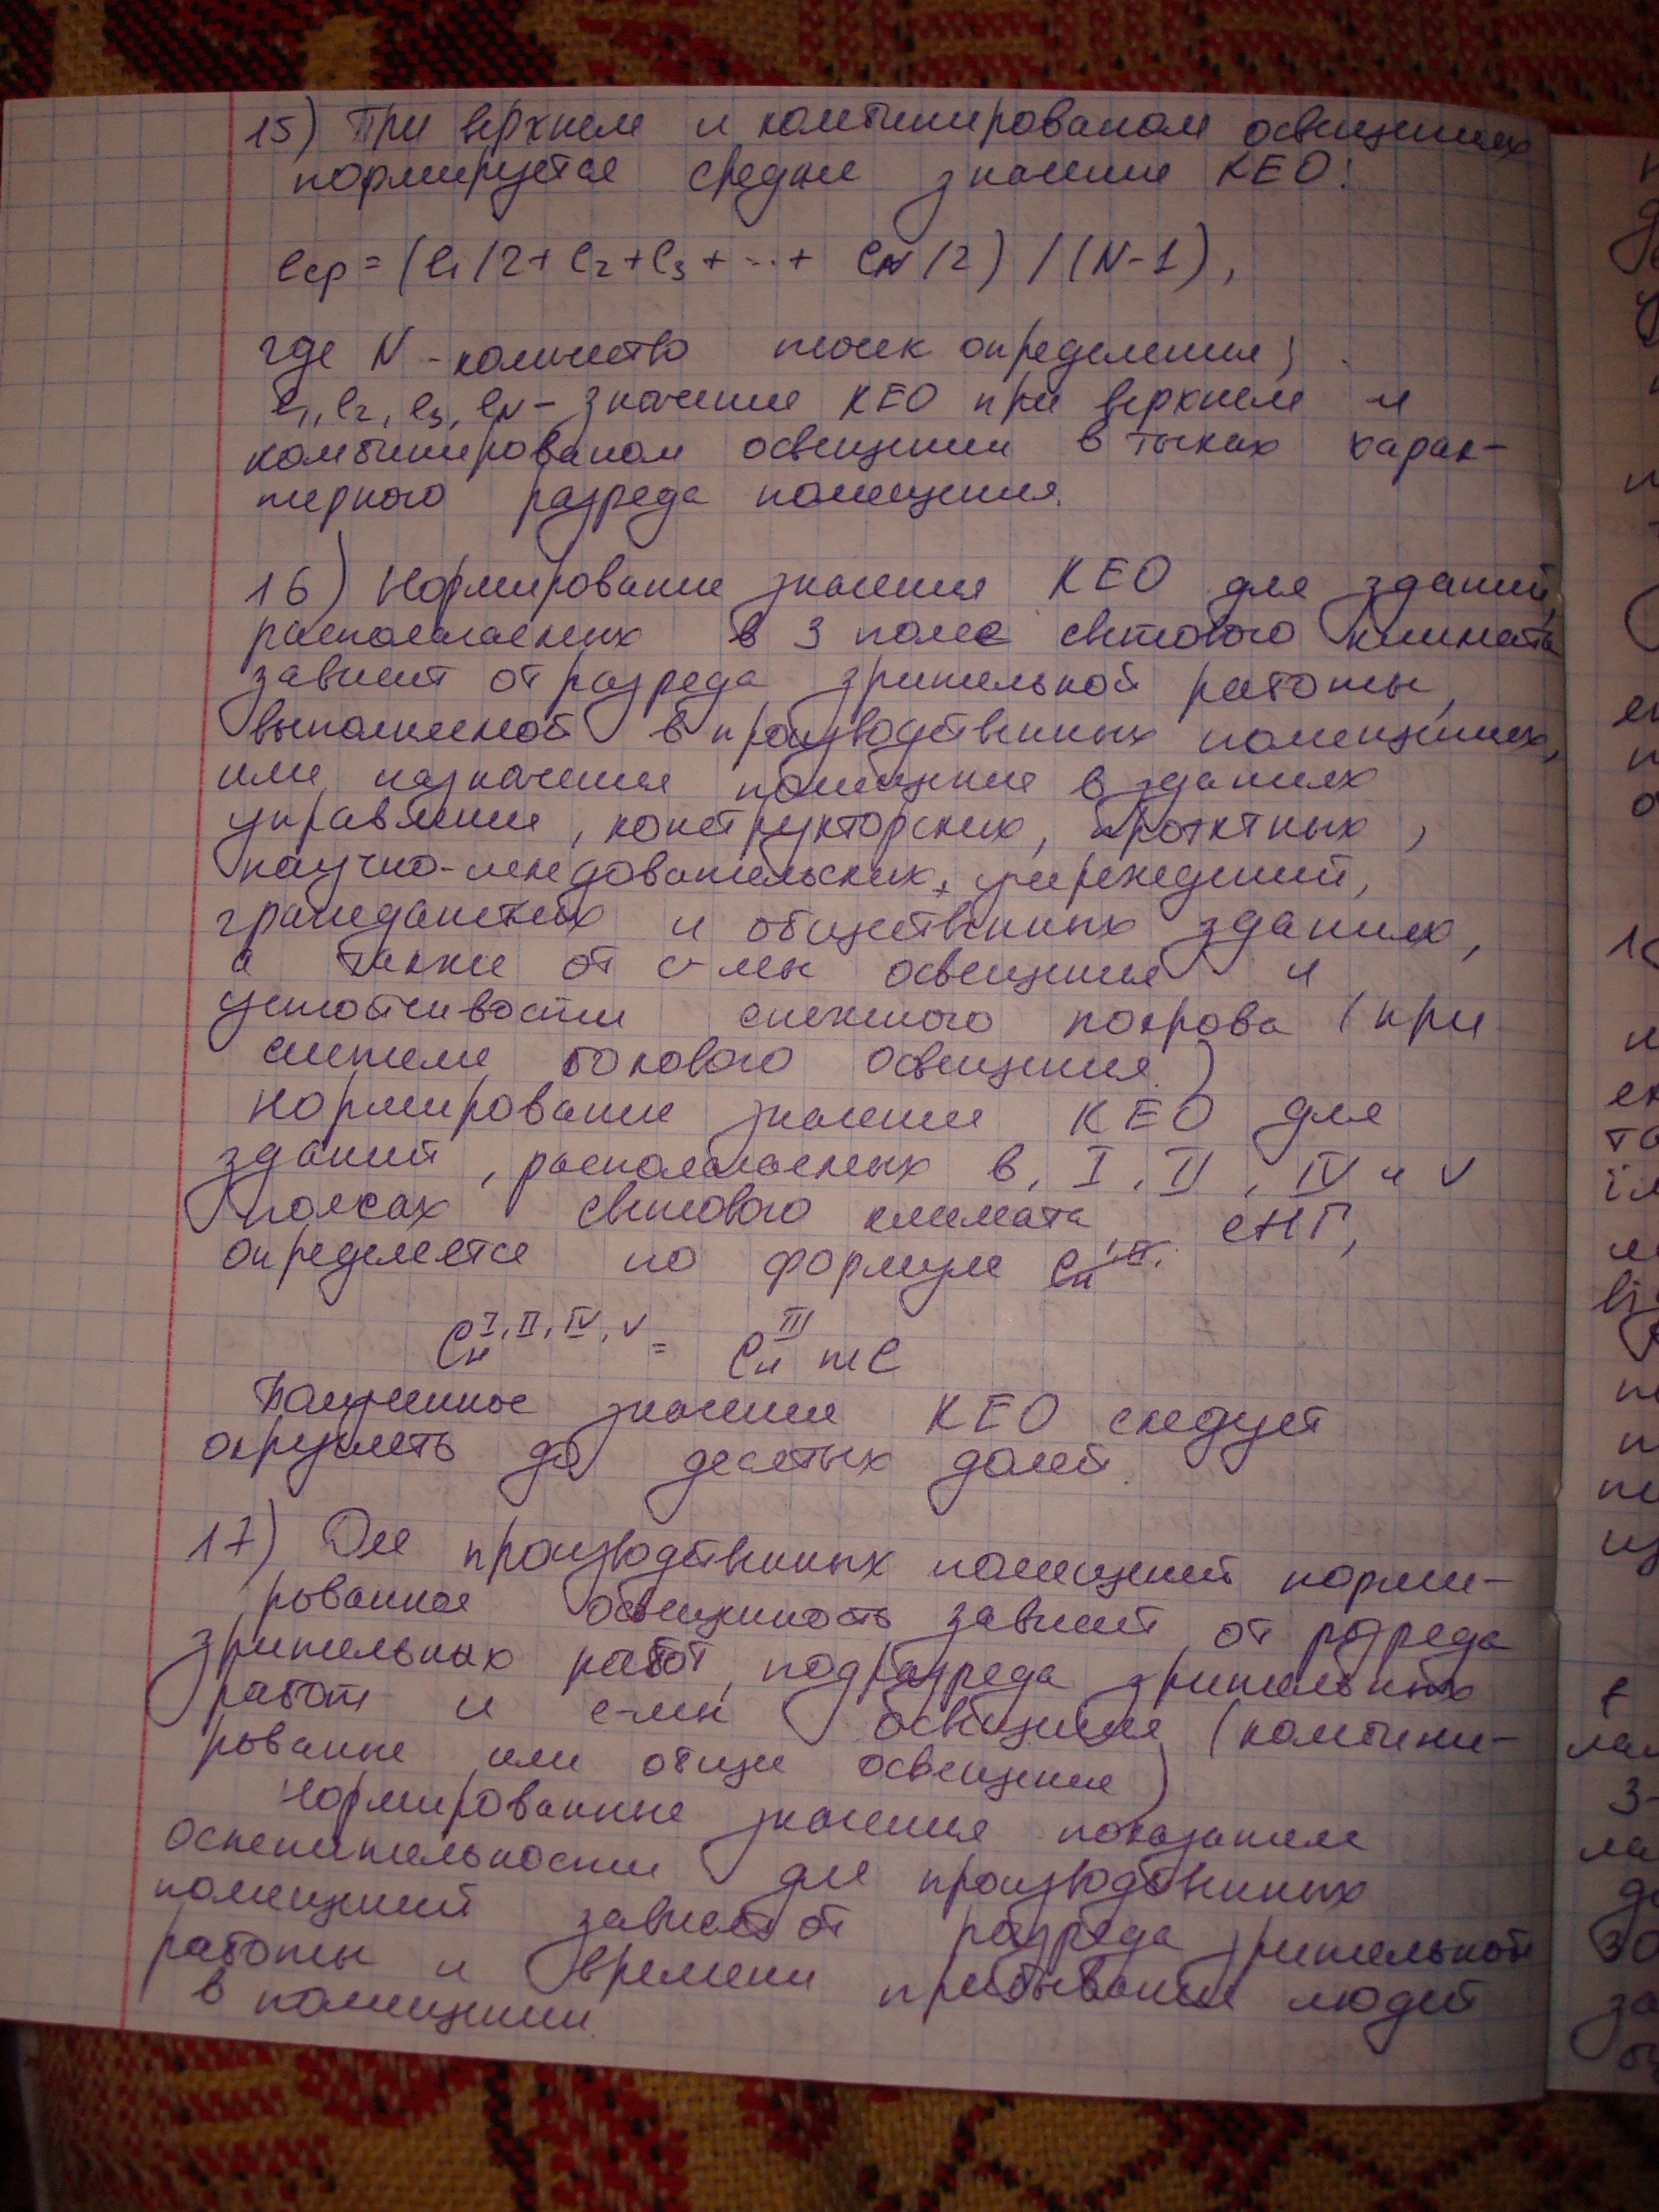 15) При верхнем и комбинированом освещениях
нормируется средние значение КЕО:
eср = (e1/2 + e2 + e3 + ... + eN/2) / (N-1),
где N - количество точек определения;
e1, e2, e3, eN - значение КЕО при верхнем и
комбинированом освещении в точках харак-
терного разреда помещения.
16) Нормирование значения КЕО для зданий,
располагаемых в 3 поясе светового климата
зависит от разреда зрительной работы,
выполняемой в производственных помещениях,
или назначения помещение в зданиях
управления, конструкторских, проэктных,
научно-исследовательских, учреждений,
гражданских и общественных зданиях,
а также от с-мы освещения и
устойчивости снежного покрова (при
системе бокового освещения.)
Нормирование значение КЕО для
зданий, располагаемых в, I, II, IV и V
поясах светового климата, СНГ,
определяется по формуле
eн I, II, IV, V = eн III mC
Полученное значение КЕО следует
округлять до десятых долей.
17) Для производственных помещений норми-
рованная освещенность зависит от разреда
зрительных работ, подразреда зрительных
работ и с-мы освещения (комбини-
рование или общие освещение)
Нормированные значения показателя
ослепительности для производственных
помещений зависят от разреда зрительной
работы и времени пребывание людей
в помещении.